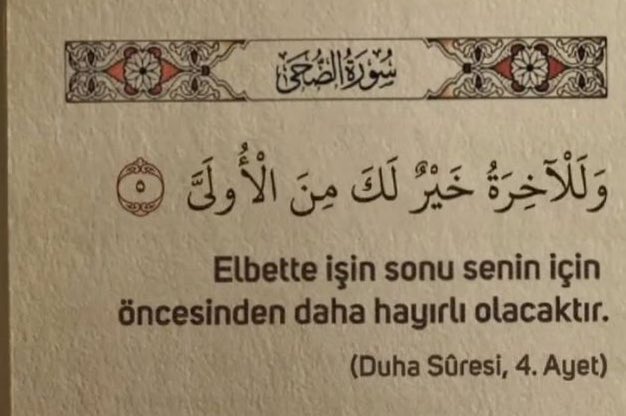 سُورَةُ الضُّحَى
وَلَلْآخِرَةُ خَيْرٌ لَكَ مِنَ الْأُولَىَّ ٥
Elbette işin sonu senin için
öncesinden daha hayırlı olacaktır.
(Duha Sûresi, 4. Ayet)